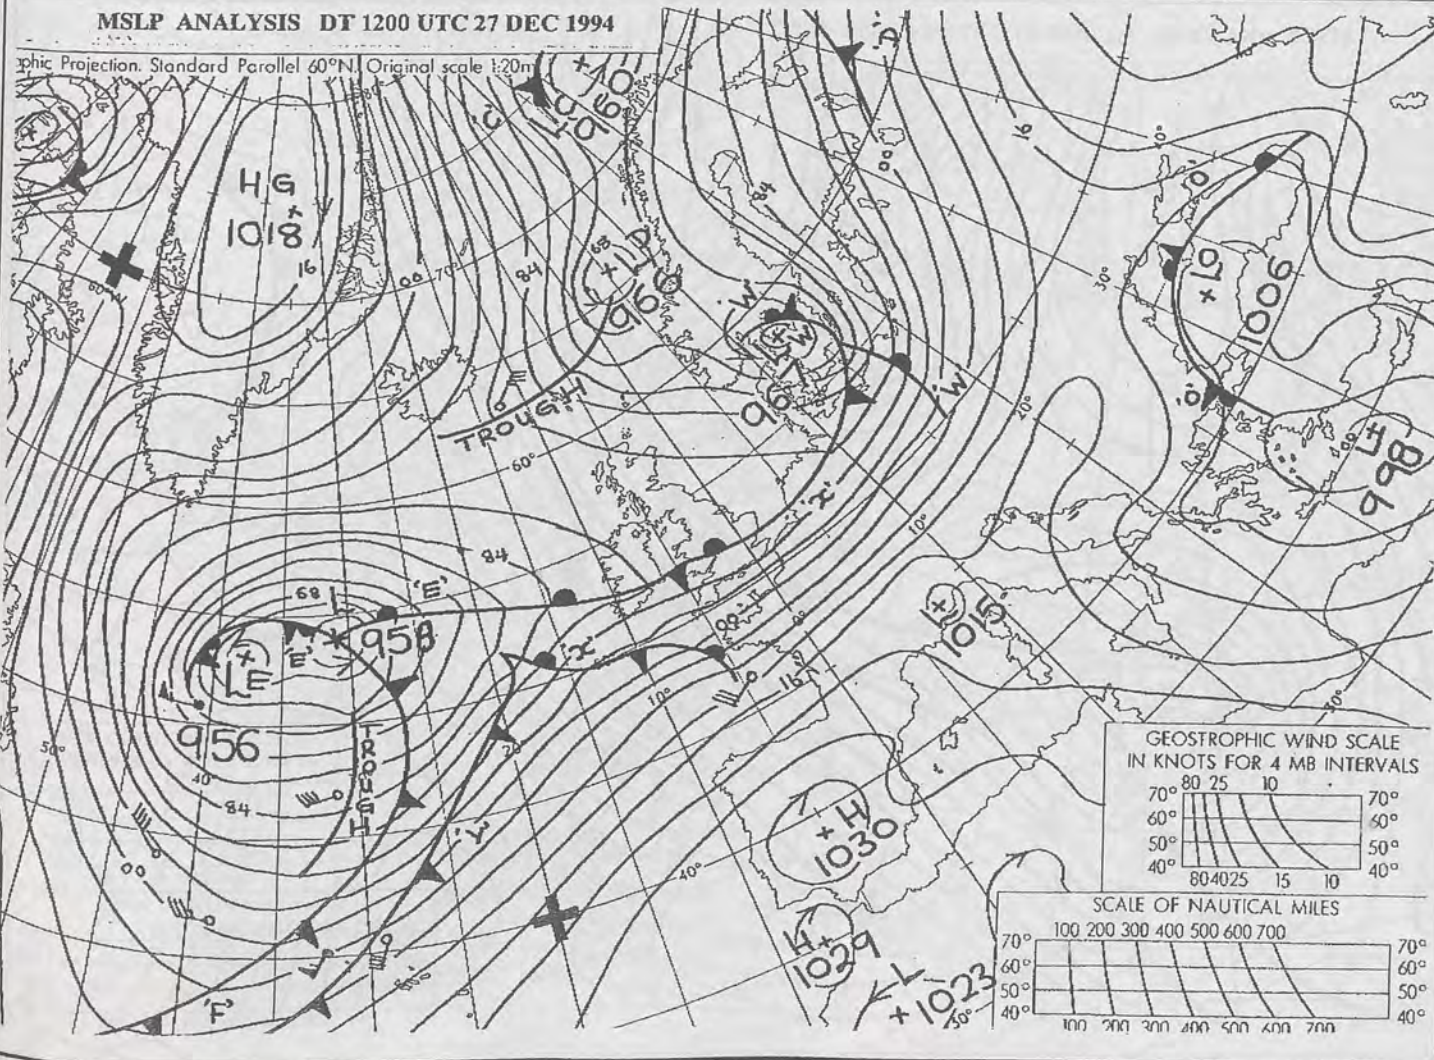 MSLP ANALYSIS DT 1200 UTC 27 DEC 1994
phic Projection. Standard Parallel 60°N. Original scale 1:20m
'C'
'D'
HG
1018
16
00
70°
84
68
LD
960
84
00
16
0°
'O'
LO
1006
30°
'W'
LW
967
'W'
'O'
L
998
TROUGH
60°
20°
'X'
10°
84
68
L
'E'
958
'E'
LE
956
'X'
00
0°
L
1015
16
10°
TROUGH
50°
40
84
20°
00
H
1030
40°
H
1029
L
1023
30°
'F'
30°
GEOSTROPHIC WIND SCALE
IN KNOTS FOR 4 MB INTERVALS
80 25 10
70° 70°
60° 60°
50° 50°
40° 40°
80 40 25 15 10
SCALE OF NAUTICAL MILES
100 200 300 400 500 600 700
70° 70°
60° 60°
50° 50°
40° 40°
100 200 300 400 500 600 700